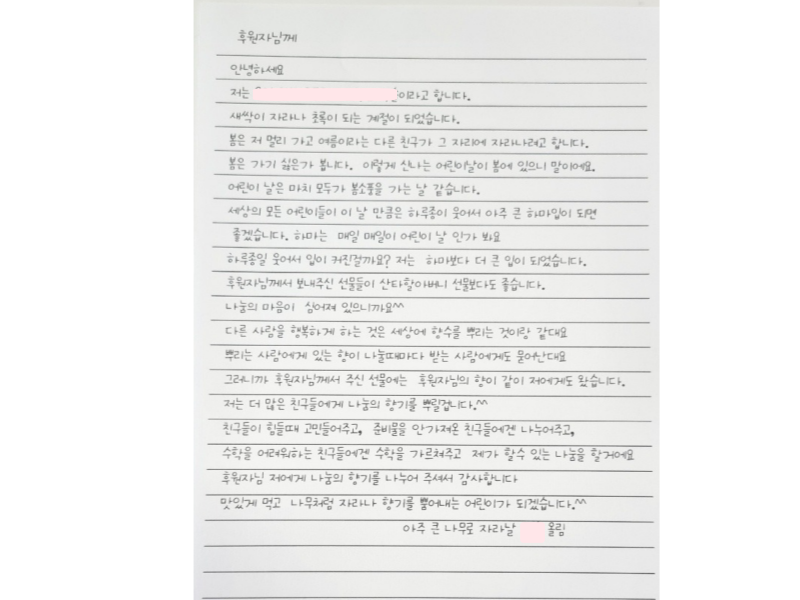 후원자님께
안녕하세요
저는 이라고 합니다.
새싹이 자라나 초록이 되는 계절이 되었습니다.
봄은 저 멀리 가고 여름이라는 다른 친구가 그 자리에 자라나려고 합니다.
봄은 가기 싫은가 봅니다. 이렇게 신나는 어린이날이 봄에 있으니 말이에요.
어린이 날은 마치 모두가 봄소풍을 가는 날 같습니다.
세상의 모든 어린이들이 이 날 만큼은 하루종이 웃어서 아주 큰 하마입이 되면
좋겠습니다. 하마는 매일 매일이 어린이 날 인가 봐요
하루종일 웃어서 입이 커진걸까요? 저는 하마보다 더 큰 입이 되었습니다.
후원자님께서 보내주신 선물들이 산타할아버니 선물보다도 좋습니다.
나눔의 마음이 싱어져 있으니까요^^
다른 사람을 행복하게 하는 것은 세상에 향수를 뿌리는 것이랑 같대요
뿌리는 사람에게 있는 향이 나눌때마다 받는 사람에게도 묻어난대요
그러니까 후원자님께서 주신 선물에는 후원자님의 향이 같이 저에게도 왔습니다.
저는 더 많은 친구들에게 나눔의 향기를 뿌릴겁니다.^^
친구들이 힘들때 고민들어주고, 준비물을 안가져온 친구들에겐 나누어주고,
수학을 어려워하는 친구들에겐 수학을 가르쳐주고 제가 할수 있는 나눔을 할거에요
후원자님 저에게 나눔의 향기를 나누어 주셔서 감사합니다
맛있게 먹고 나무처럼 자라나 향기를 뿜어내는 어린이가 되겠습니다.^^
아주 큰 나무로 자라날 올림